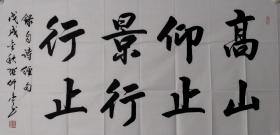 高山
仰止
景行
行止
錄自詩經句
戊戌金秋